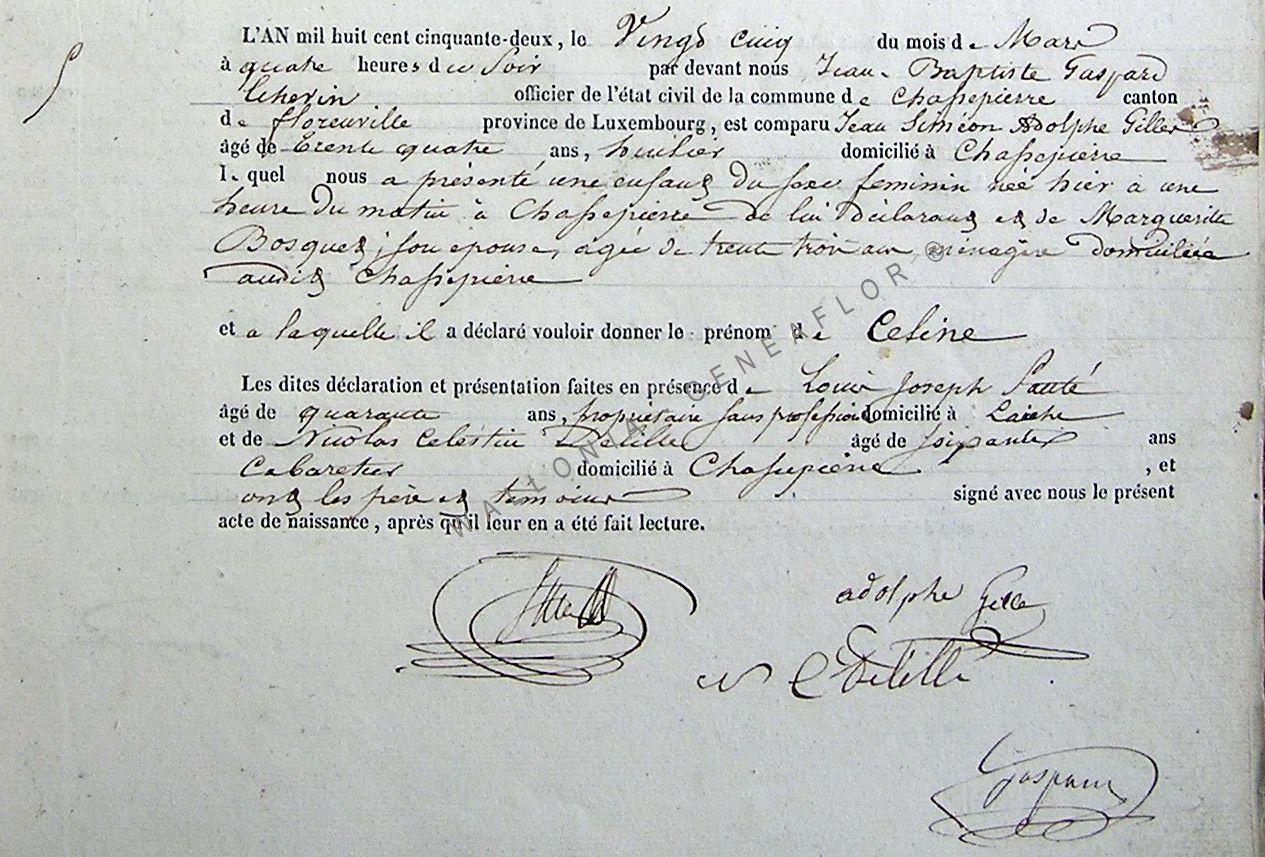 L'AN mil huit cent cinquante-deux, le Vingt cinq du mois de Mars
à quatre heures du Soir par devant nous Jean-Baptiste Gaspard
officier de l'état civil de la commune de Chassepierre canton
de florenville province de Luxembourg, est comparu Jean Siméon Adolphe Gilles
âgé de trente quatre ans, domicilié à Chassepierre
Lequel nous a présenté une enfant du sexe feminin née hier à une
heure du matin à Chassepierre de lui déclarant et de Margueritte
Bosquet, son épouse, agée de trente trois ans, ménagère domiciliée
audit Chassepierre
et a laquelle il a déclaré vouloir donner le prénom de Celine
Les dites déclaration et présentation faites en présence de Louis Joseph
âgé de quarante ans, propriétaire sans profession domicilié à Laiche
et de Nicolas Celestin Delille âgé de soixante ans
Cabaretier domicilié à Chassepierre, et
ont les père et temoins signé avec nous le présent
acte de naissance, après qu'il leur en a été fait lecture.
adolphe Gilles
N C Delille
Gaspard
WALLONIA GENEAFLOR ®